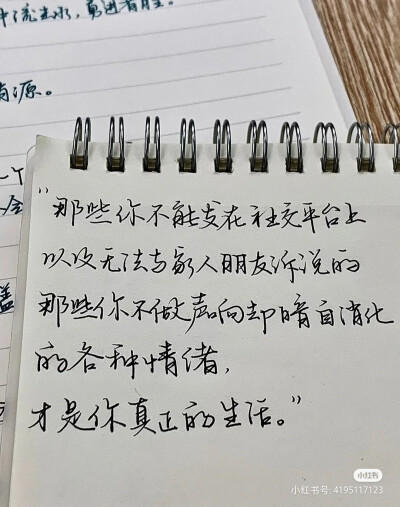 资源。
"那些你不能发在社交平台上
以及无法与家人朋友诉说的
那些你不做声响却暗自消化
的各种情绪,
才是你真正的生活。"
小红书
小红书号: 4195117123